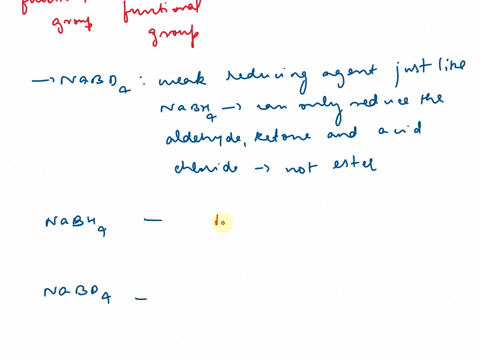 group functional
group
→ NaBD4 : weak reducing agent just like
NaBH4 → can only reduce the
aldehyde, ketone and acid
chloride → not ester
NaBH4 —
NaBD4 —